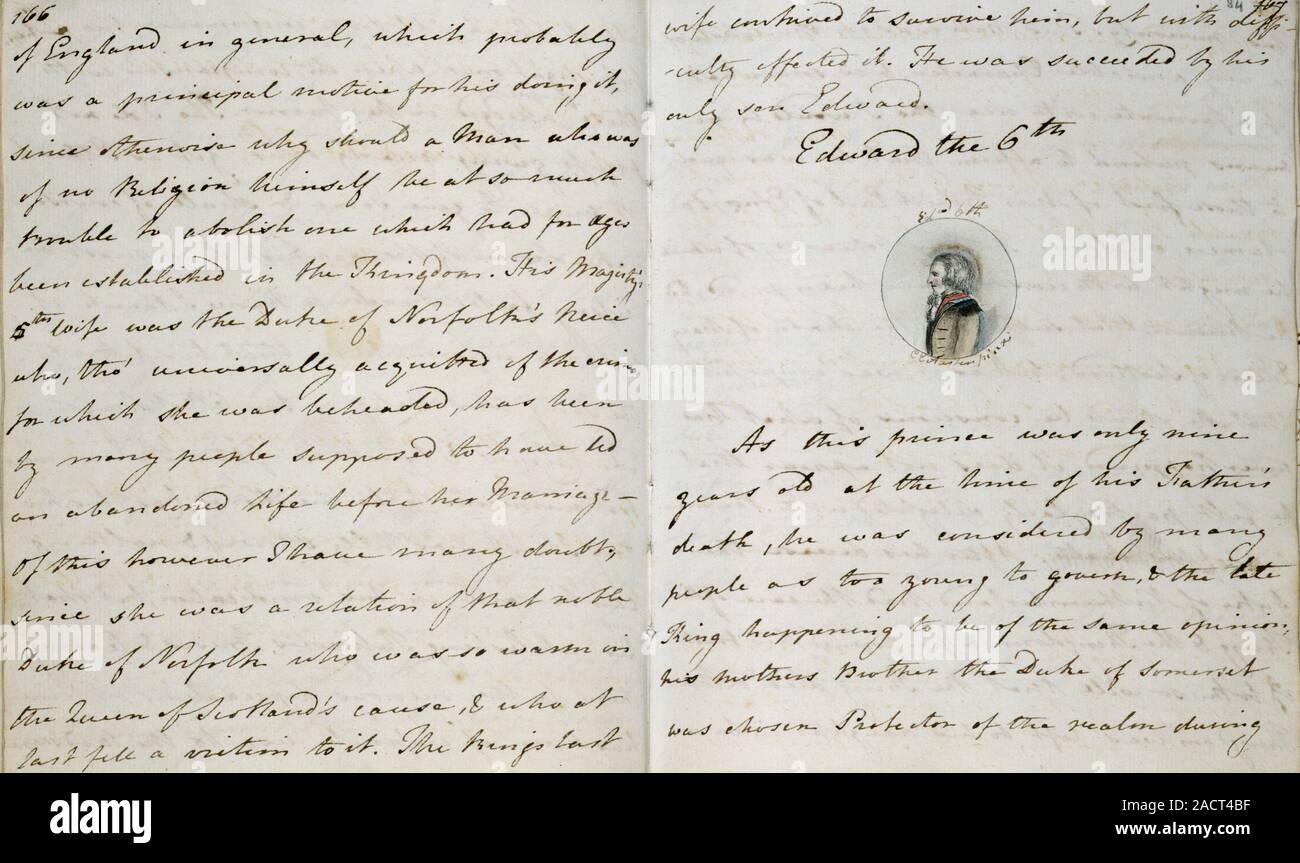 166
of England in general, which probably
was a principal motive for his doing it,
since otherwise why should a Man who was
of no Religion himself be at so much
trouble to abolish one which had for Ages
been established in the Kingdom. His Majesty's
5th wife was the Duke of Norfolk's Neice
who, tho' universally acquitted of the crimes
for which she was beheaded, has been
by many people supposed to have led
an abandoned Life before her Marriage—
Of this however I have many doubts,
since she was a relation of that noble
Duke of Norfolk who was so warm in
the Queen of Scotland's cause, & who at
last fell a victim to it. The Kings last
84 167
wife contrived to survive him, but with diffi-
-culty effected it. He was succeeded by his
only son Edward.
Edward the 6th
Ed 6th
C E Austen pinx
As this prince was only nine
years old at the time of his Father's
death, he was considered by many
people as too young to govern, & the late
King happening to be of the same opinion,
his mothers Brother the Duke of Somerset
was chosen Protector of the realm during
alamy
a
alamy
2ACT4BF
www.alamy.com